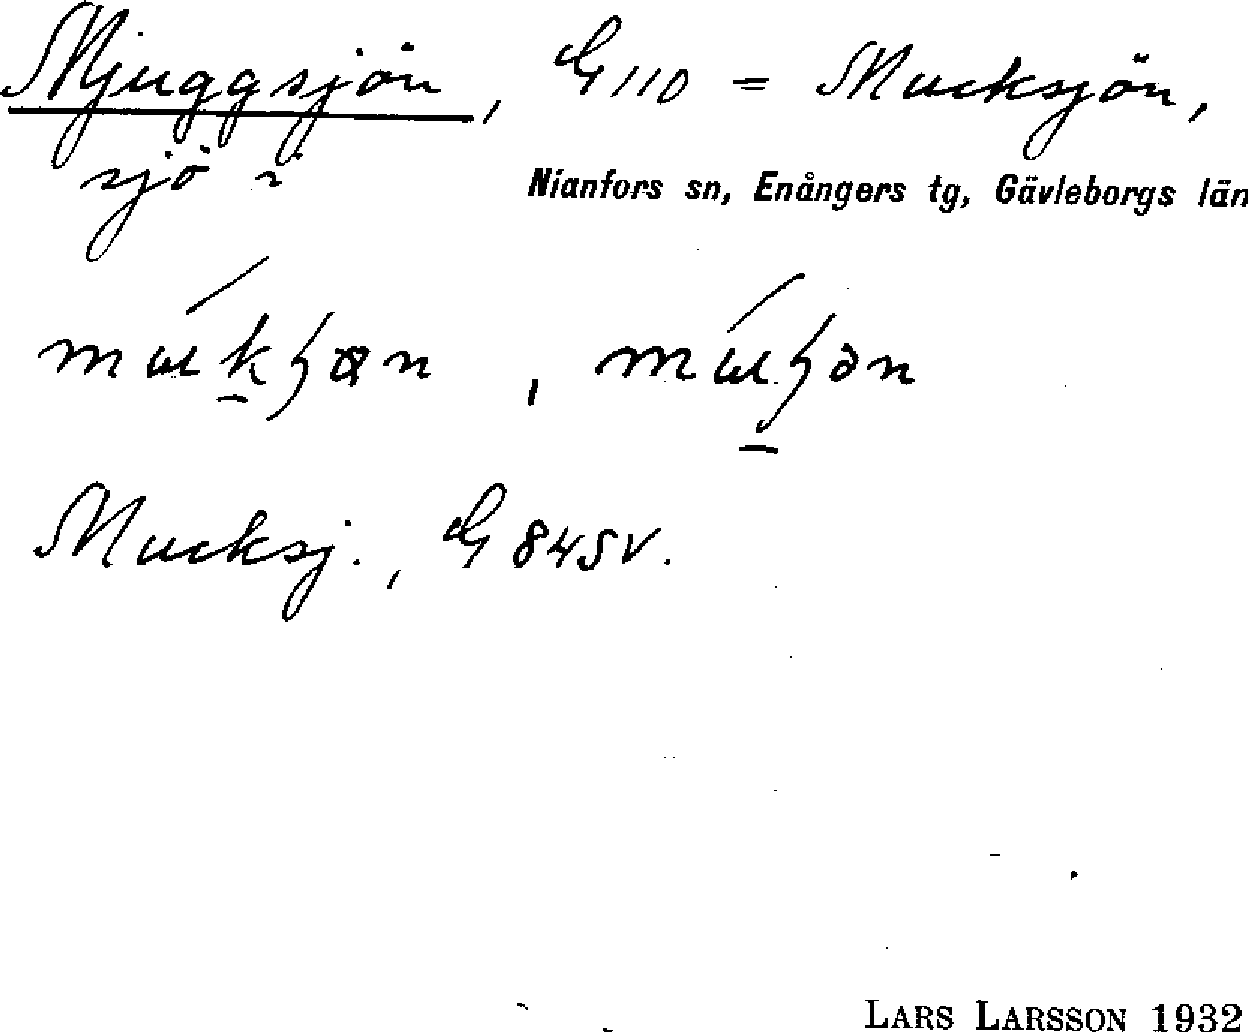 Mjuggsjön, G110 = Mucksjön,
sjö i
Nianfors sn, Enångers tg, Gävleborgs län
Mucksj., G 84 SV.
LARS LARSSON 1932